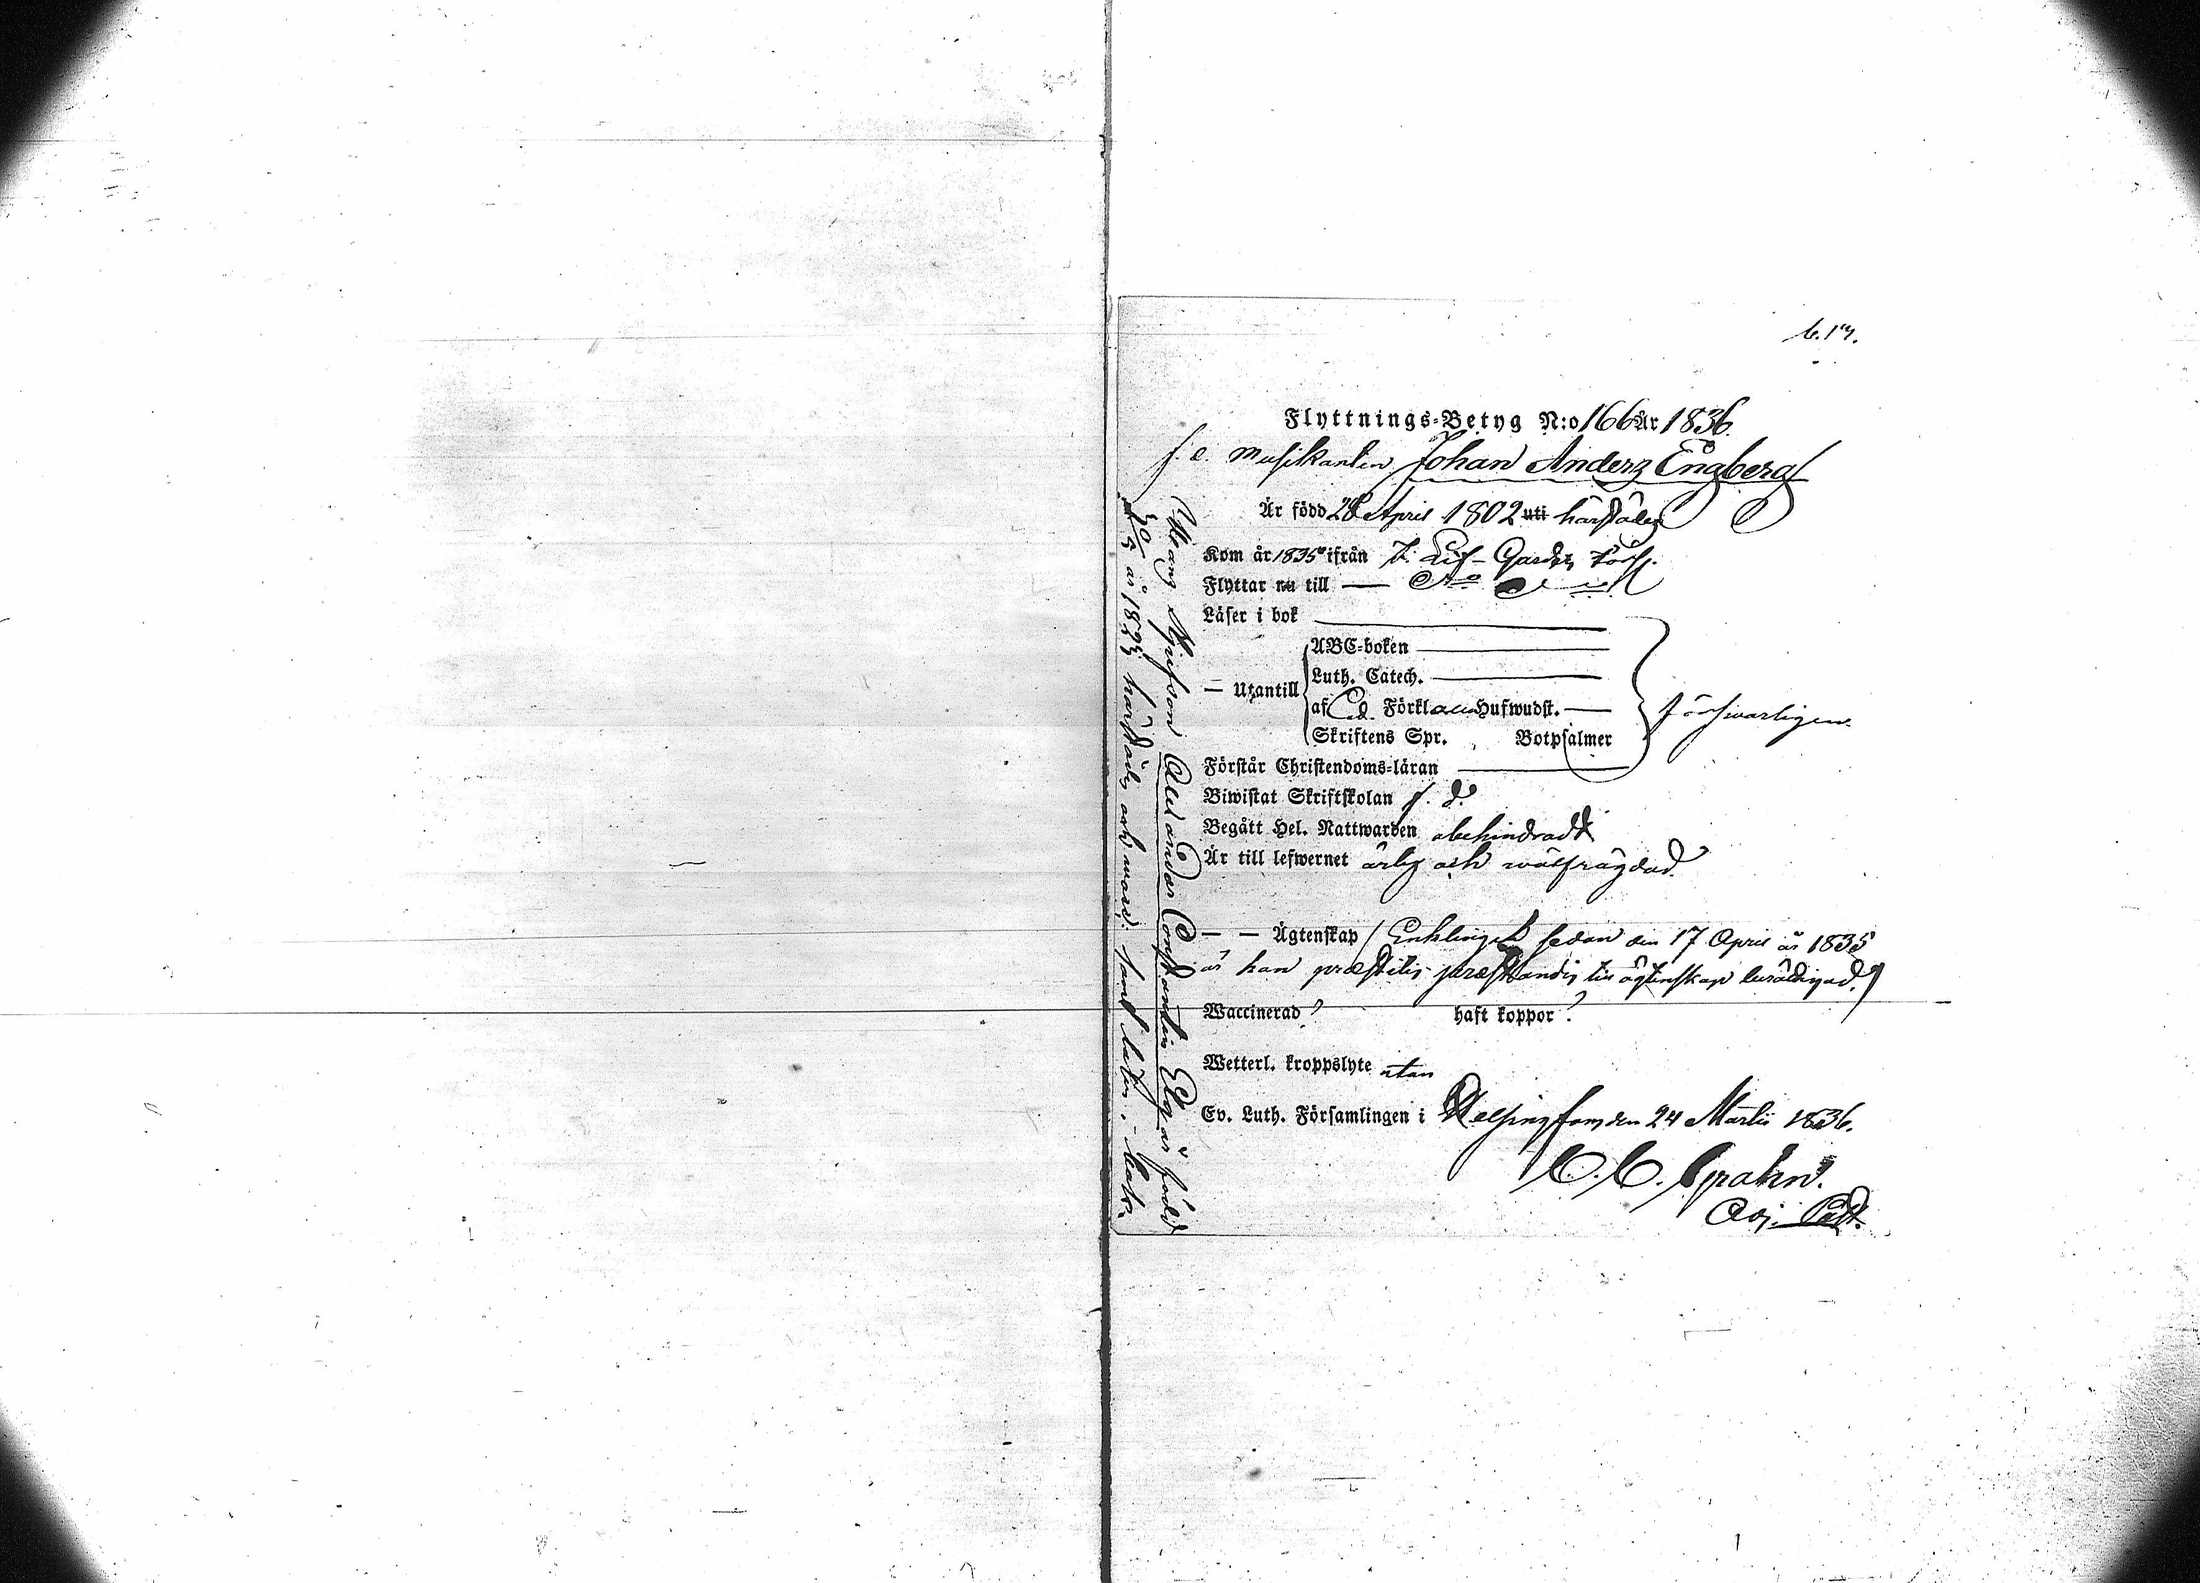 b. 17.
Flyttnings-Betyg N:o 166 År 1836.
f. d. Musikanten Johan Anders Engberg
Är född 28 April 1802 uti härstädes
Kom år 1835 ifrån F. Lif-Gardes Förs.
Flyttar nu till —
Läser i bok
— Utantill
ABC-boken
Luth. Catech.
af Förkl Hufwudst. —
Skriftens Spr. Botpsalmer
försvarligen.
Förstår Christendoms-läran
Biwistat Skriftskolan f. d.
Begått Hel. Nattwarden obehindradt
Är till lefwernet ärlig och wälfrägdad.
— — Ägtenskap / Enkling sedan den 17 April år 1835
är han till ägtenskap berättigad. /
Waccinerad? haft koppor?
Wetterl. kroppslyte utan
Ev. Luth. Församlingen i Helsingfors den 24 Martii 1836.
C. C. Grahn.
Adj. Past.
Alexander Constantin är född
år härstädes och